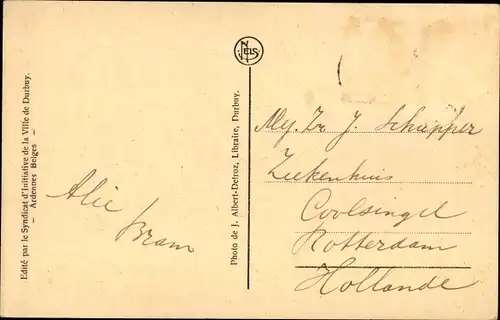 Edité par le Syndicat d'Initiative de la Ville de Durbuy.
— Ardennes Belges —
Alie
Bram
NELS
Photo de J. Albert-Detroz, Libraire, Durbuy.
Mej. Zr J. Schepper
Ziekenhuis
Coolsingel
Rotterdam
Hollande